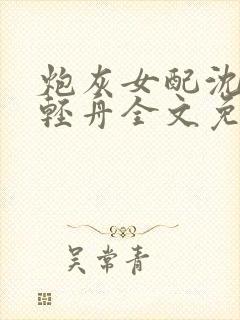 炮灰女配沈
轻丹全文免
吴常青